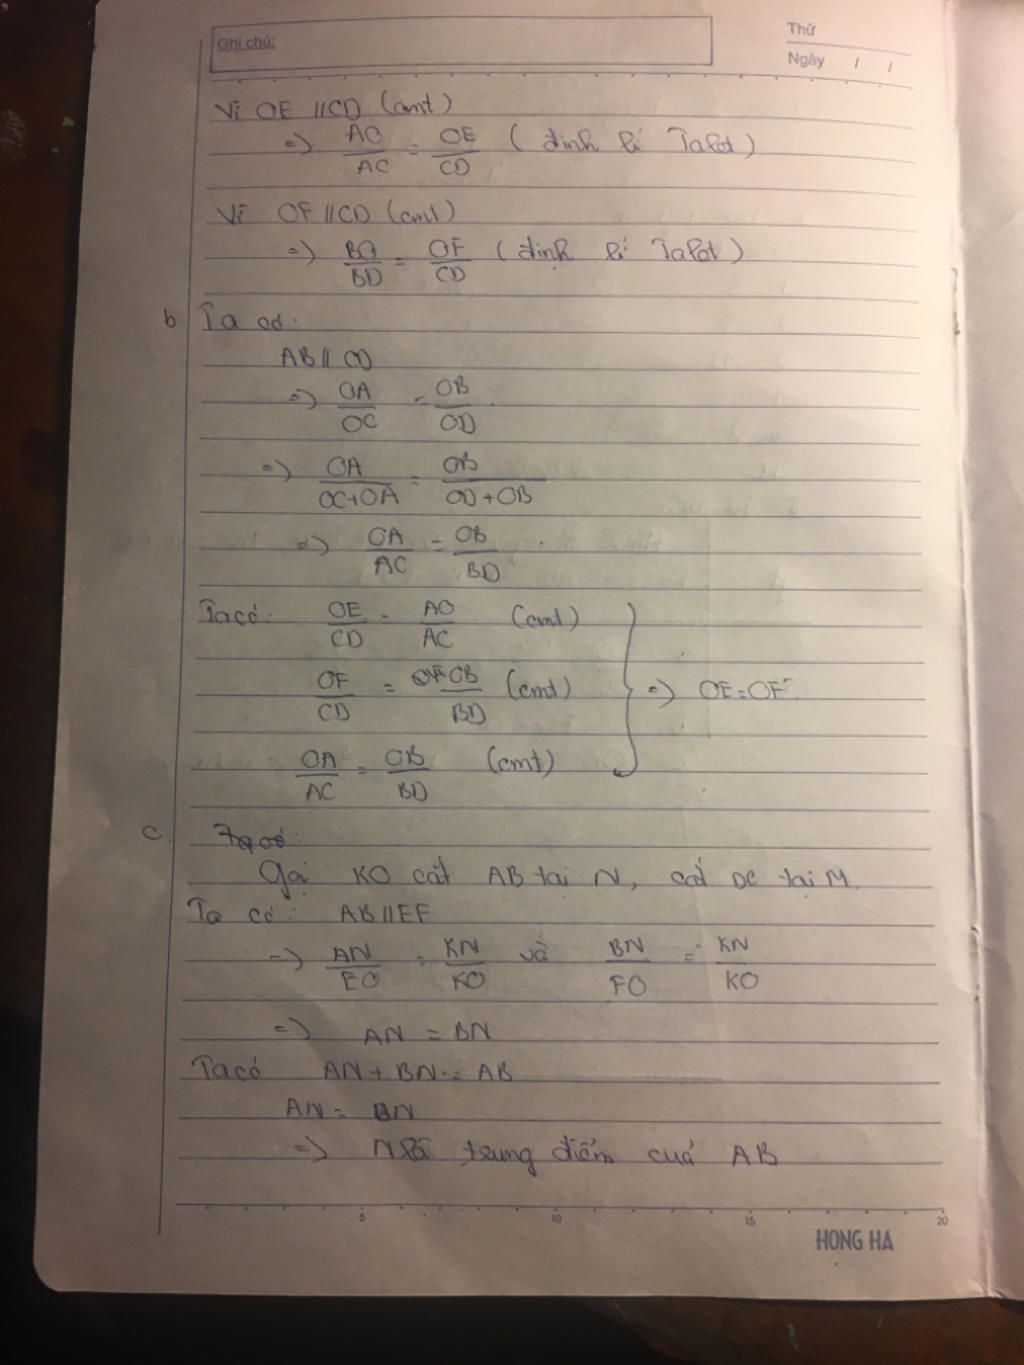 Ghi chú:
Thứ
Ngày / /
Vì OE // CD (cmt)
=> AO/AC = OE/CD (định lí Talet)
Vì OF // CD (cmt)
=> BO/BD = OF/CD (định lí Talet)
b Ta có:
AB // CD
=> OA/OC = OB/OD
=> OA/OC+OA = OB/OD+OB
=> OA/AC = OB/BD
Ta có: OE/CD = AO/AC (cmt)
OF/CD = OB/BD (cmt) => OE = OF
OA/AC = OB/BD (cmt)
c Ta có:
Gọi KO cắt AB tại N, cắt DC tại M.
Ta có: AB // EF
=> AN/EO = KN/KO và BN/FO = KN/KO
=> AN = BN
Ta có AN + BN = AB
AN = BN
=> N là trung điểm của AB
5 10 15 20
HONG HA